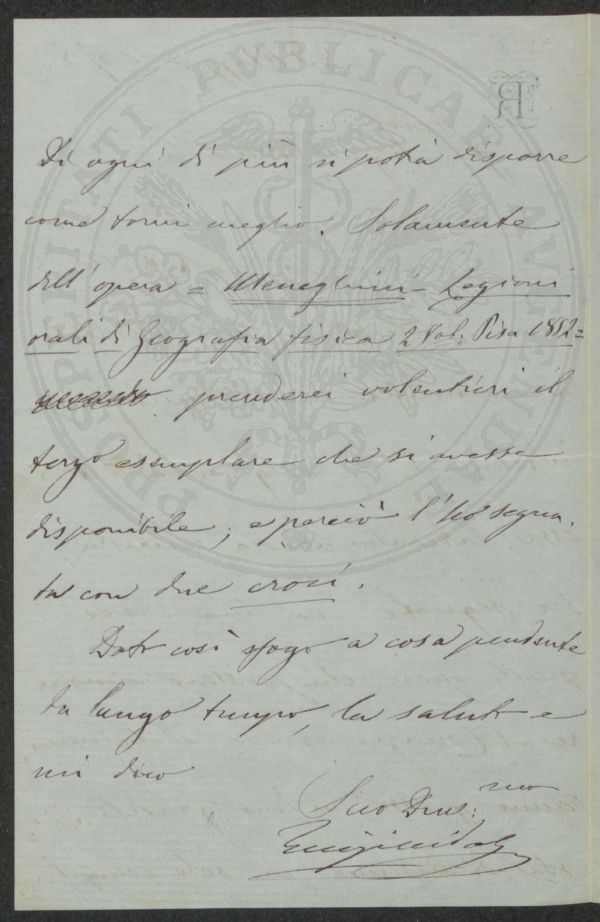 PROSPERITATI PUBLICAE AUGENDAE
Di ogni di più si potrà disporre
come torni meglio. Solamente
dell'opera = Meneghini - Lezioni
orali di Geografia fisica 2 Vol: Pisa 1852 =
prenderei volentieri il
terzo esemplare che si avesse
disponibile, e perciò l'ho segna-
ta con due croci.
Dato così sfogo a cosa pendente
da lungo tempo, la saluto e
mi dico
Suo Dev:mo